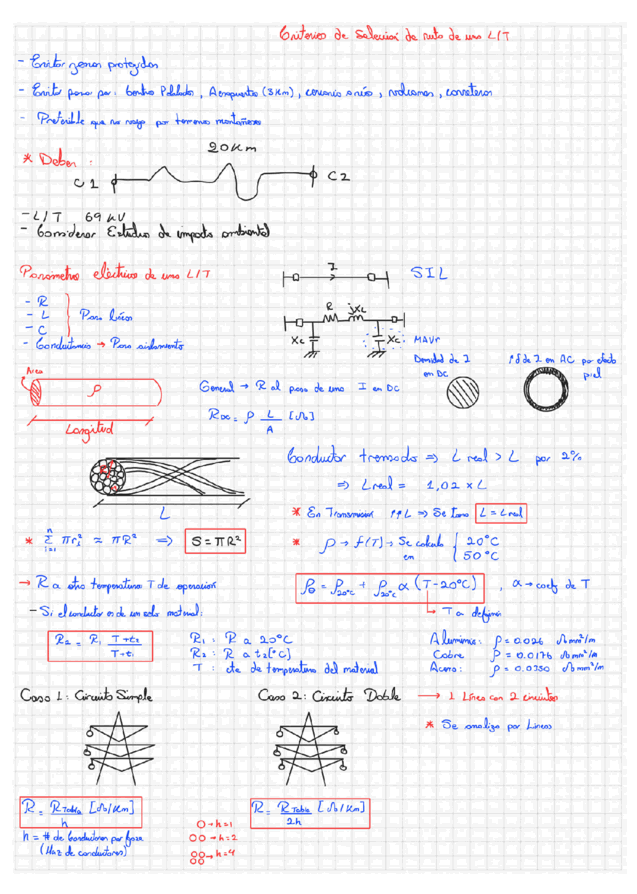 Criterios de Selección de ruta de una L/T
- Evitar zonas protegidas
- Evitar pasar por: Centros Poblados, Aeropuertos (3Km), cercanía a ríos, volcanes, carreteras
- Preferible que no vaya por terrenos montañosos
* Deber:
20Km
C1
C2
- L/T 69 kV
- Considerar Estudios de impacto ambiental
Parámetros eléctricos de una L/T
I
SIL
- R
- L
- C
Para líneas
- Conductancia → Para aislamiento
R
jXL
Xc
Xc
MAVr
Densidad de I en DC
↑δ de I en AC por efecto piel
Area
ρ
Longitud
General → R al paso de una I en DC
RDC = ρ L/A [Ω]
L
Conductor trenzado ⇒ L real > L por 2%
⇒ L real = 1,02 x L
* En Transmisión ↑↑L ⇒ Se toma L = L real
* Σ i=1 n πri² ≈ πR² ⇒ S = πR²
* ρ → f(T) → Se calcula en { 20°C
50°C
→ R a otra temperatura T de operación
ρθ = ρ20°C + ρ20°C α (T-20°C), α → coef de T
→ T a definir
- Si el conductor es de un solo material:
R2 = R1 T+t2/T+t1
R1: R a 20°C
R2: R a t2[°C]
T: cte de temperatura del material
Aluminio: ρ = 0.026 Ωmm²/m
Cobre ρ = 0.0176 Ωmm²/m
Acero: ρ = 0,0350 Ωmm²/m
Caso 1: Circuito Simple
Caso 2: Circuito Doble → 1 Línea con 2 circuitos
* Se analiza por Líneas
R = RTabla/h [Ω/Km]
R = RTabla/2h [Ω/Km]
h = # de Conductores por fase
(Haz de conductores)
O→h=1
OO→h=2
→h=4